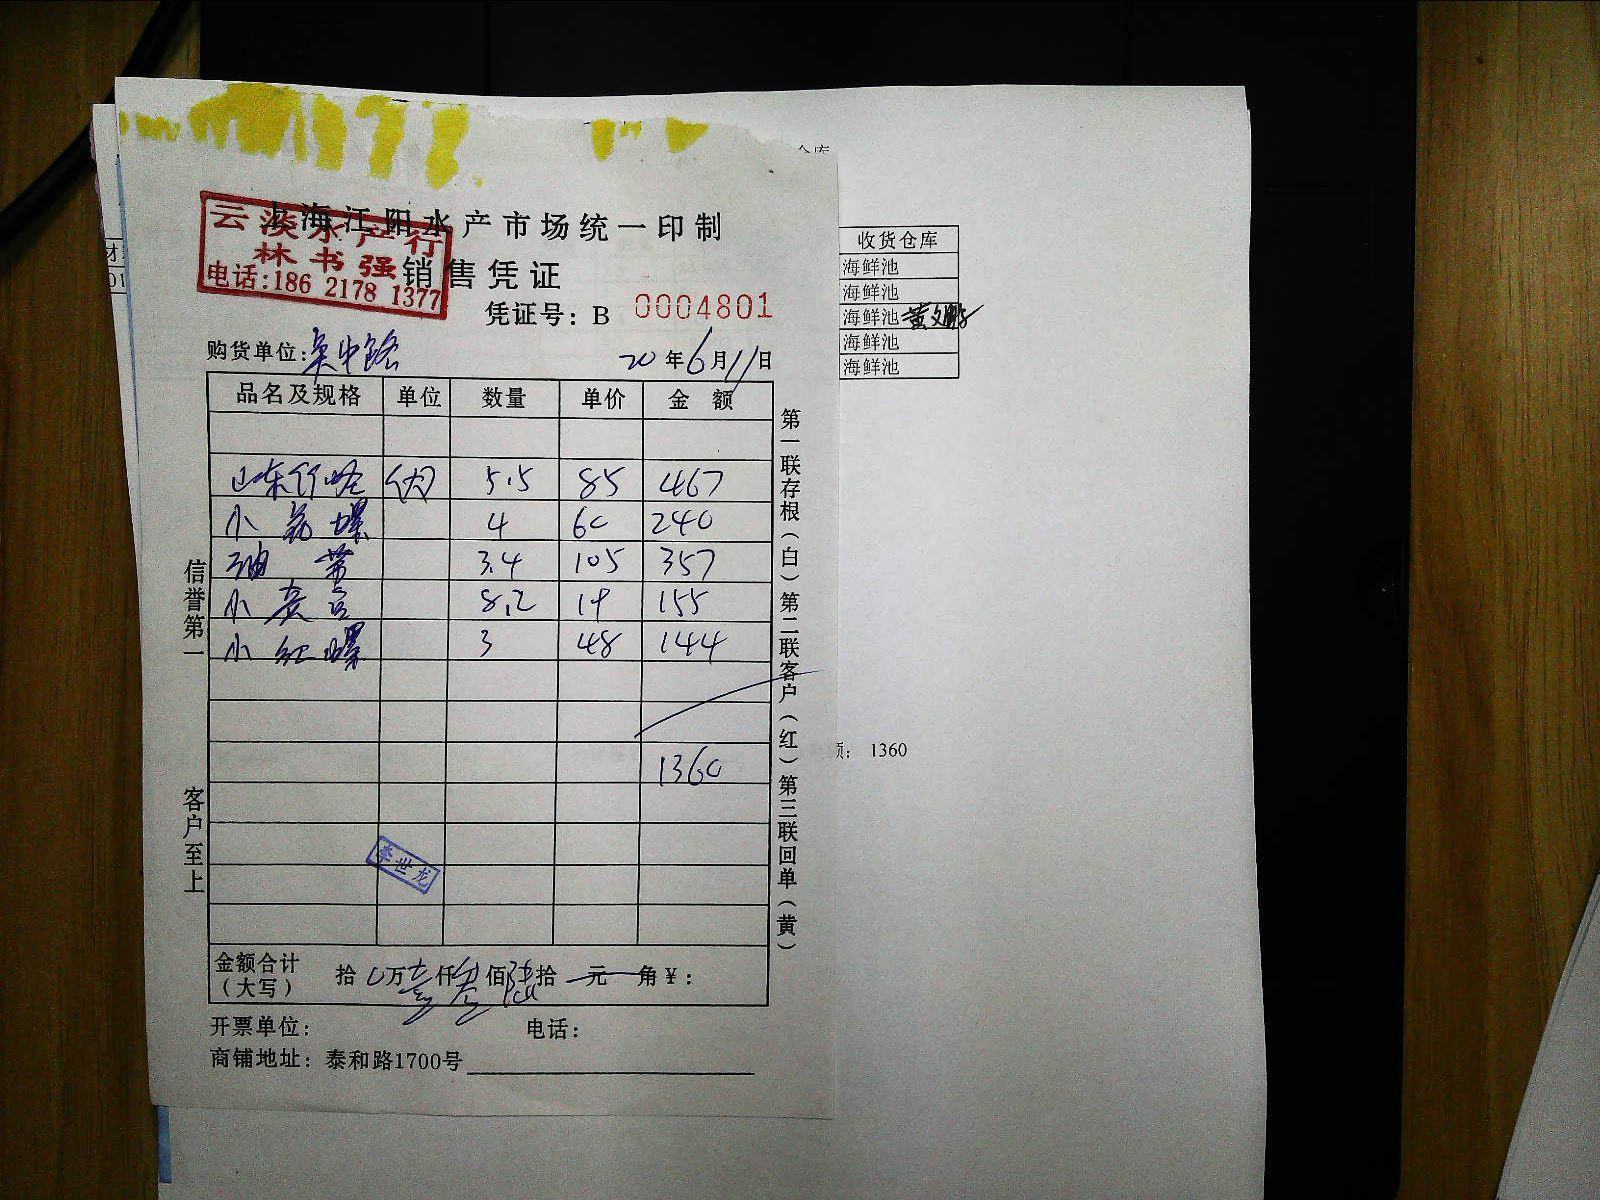 仓库
上海江阳水产市场统一印制
云淡水产行
林书强
电话:186 2178 1377
销售凭证
凭证号: B 0004801
购货单位: 吴中路 20年6月11日
品名及规格 单位 数量 单价 金额
5.5 85 467
小 螺 4 60 240
油 带 3.4 105 357
小 8.2 19 155
小红螺 3 48 144
1360
李世龙
金额合计(大写) 拾 万壹仟叁佰陆拾 元 角¥:
开票单位: 电话:
商铺地址: 泰和路1700号
信誉第一
客户至上
第一联存根(白)第二联客户(红)第三联回单(黄)
收货仓库
海鲜池
海鲜池
海鲜池 黄文鹏
海鲜池
海鲜池
1360